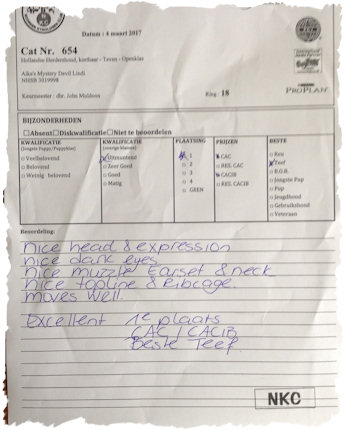 Datum : 4 maart 2017
Cat Nr. 654
Hollandse Herdershond, korthaar - Teven - Openklas
Alka's Mystery Devil Lindi
NHSB 3019998
Keurmeester : dhr. John Muldoon
Ring : 18
PROPLAN
BIJZONDERHEDEN
Absent Diskwalificatie Niet te beoordelen
KWALIFICATIE KWALIFICATIE PLAATSING PRIJZEN BESTE
(Jongste Puppy/Puppyklas) (overige klassen)
Veelbelovend Uitmuntend 1 CAC Reu
Belovend Zeer Goed 2 RES. CAC Teef
Weinig belovend Goed 3 CACIB B.O.B.
Matig 4 RES. CACIB Jongste Pup
GEEN Pup
Jeugdhond
Gebruikshond
Veteraan
Beoordeling:
nice head & expression
nice dark eyes
nice muzzle Earset & neck
nice topline & Ribcage
moves well.
Excellent 1e plaats
CAC / CACIB
Beste Teef
NKC